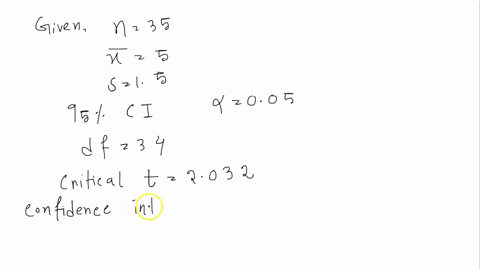 Given, n = 35
x̄ = 5
s = 1.5
95% CI α = 0.05
df = 34
Critical t = 2.032
Confidence int